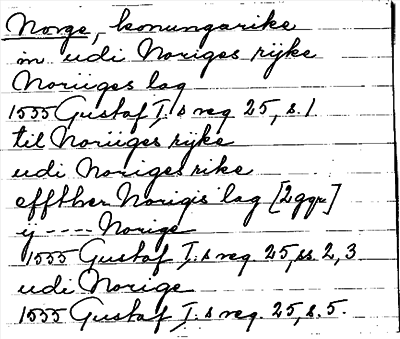 Norge, konungarike
in udi Noriges rijke
Noriiges lag
1555 Gustaf I:s reg 25, s. 1
til Noriiges rijke
udi Noriges rike
effther Norigis lag [2 ggr]
ij ---- Norige
1555 Gustaf I:s reg. 25, ss. 2, 3
udi Norige
1555 Gustaf I:s reg. 25, s. 5.